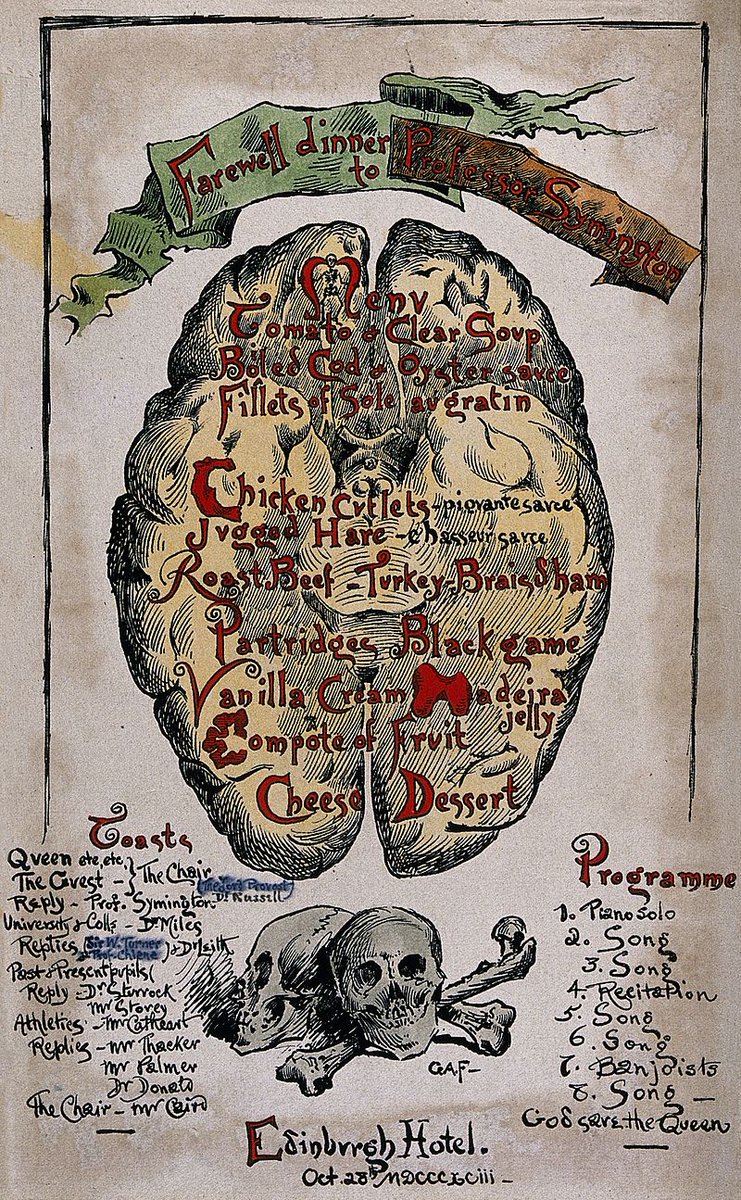 Farewell dinner
to Professor Symington
Menv
Tomato & Clear Sovp
Boiled Cod & Oyster savce
Fillets of Sole av gratin
Chicken Cvtlets - piqvante savce
Jvgged Hare - Chasseur savce
Roast Beef - Turkey - Brais'd ham
Partridges Black game
Vanilla Cream Madeira
jelly
Compote of Fruit
Cheese Dessert
Toasts
Qveen etc, etc, } The Chair
The Gvest - }
The Lord Provost
Dr Russell
Reply - Prof. Symington
University & Colls - Dr Miles
Replies Sir W. Turner & Dr Leith
& Prof. Chiene
Past & Present pupils
Reply - Dr Sturrock
Mr Storey
Athletics - Mr Cathcart
Replies - Mr Thacker
Mr Palmer
Dr Donato
The Chair - Mr Caird
Programme
1. Piano solo
2. Song
3. Song
4. Recitation
5. Song
6. Song
7. Banjoists
8. Song -
God save the Queen
G.A.F -
Edinbvrgh Hotel.
Oct. 28th MDCCCXCiii -